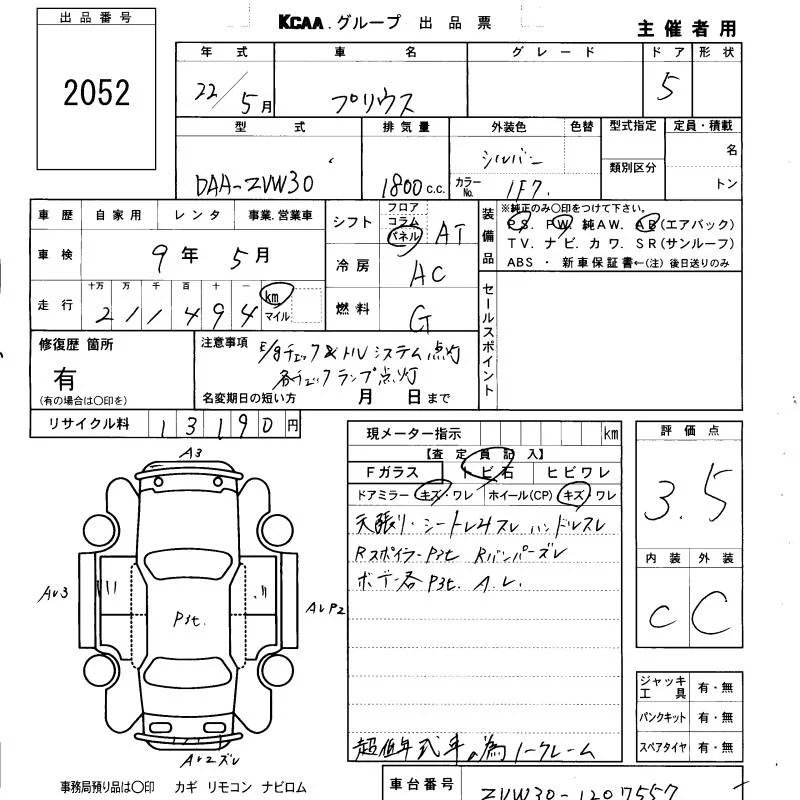 出品番号
2052
KCAA.グループ 出品票
主催者用
年式 車名 グレード ドア 形状
22/5月 プリウス 5
型式 排気量 外装色 色替 型式指定 定員・積載
DAA-ZVW30 1800c.c. シルバー 名
類別区分
カラーNo. 1F7. トン
車歴 自家用 レンタ 事業.営業車
車検 9年 5月
走行 十万 万 千 百 十 一
211494 km マイル
シフト フロア コラム パネル AT
冷房 AC
燃料 G
装備品
※純正のみ〇印をつけて下さい。
PS. PW. 純AW. AB(エアバック)
TV. ナビ. カワ. SR(サンルーフ)
ABS・新車保証書←(注)後日送りのみ
セールスポイント
修復歴 箇所
有
(有の場合は〇印を)
注意事項 E/gチェック&HVシステム点灯
各チェックランプ点灯
名変期日の短い方 月 日まで
リサイクル料 13190円
現メーター指示 km
【査定員記入】
Fガラス トビ石 ヒビワレ
ドアミラー キズ・ワレ ホイール(CP) キズ・ワレ
天張り・シートレ4スレ ハンドルスレ
Rスポイラー P3t Rバンパーズレ
ボデー各P3t. A.L.
超低年式車の為ノークレーム
評価点
3.5
内装 外装
C C
ジャッキ工具 有・無
パンクキット 有・無
スペアタイヤ 有・無
A3
AU3
P3t.
AUP2
AU2ズレ
事務局預り品は〇印 カギ リモコン ナビロム
車台番号 ZVW30-1207557